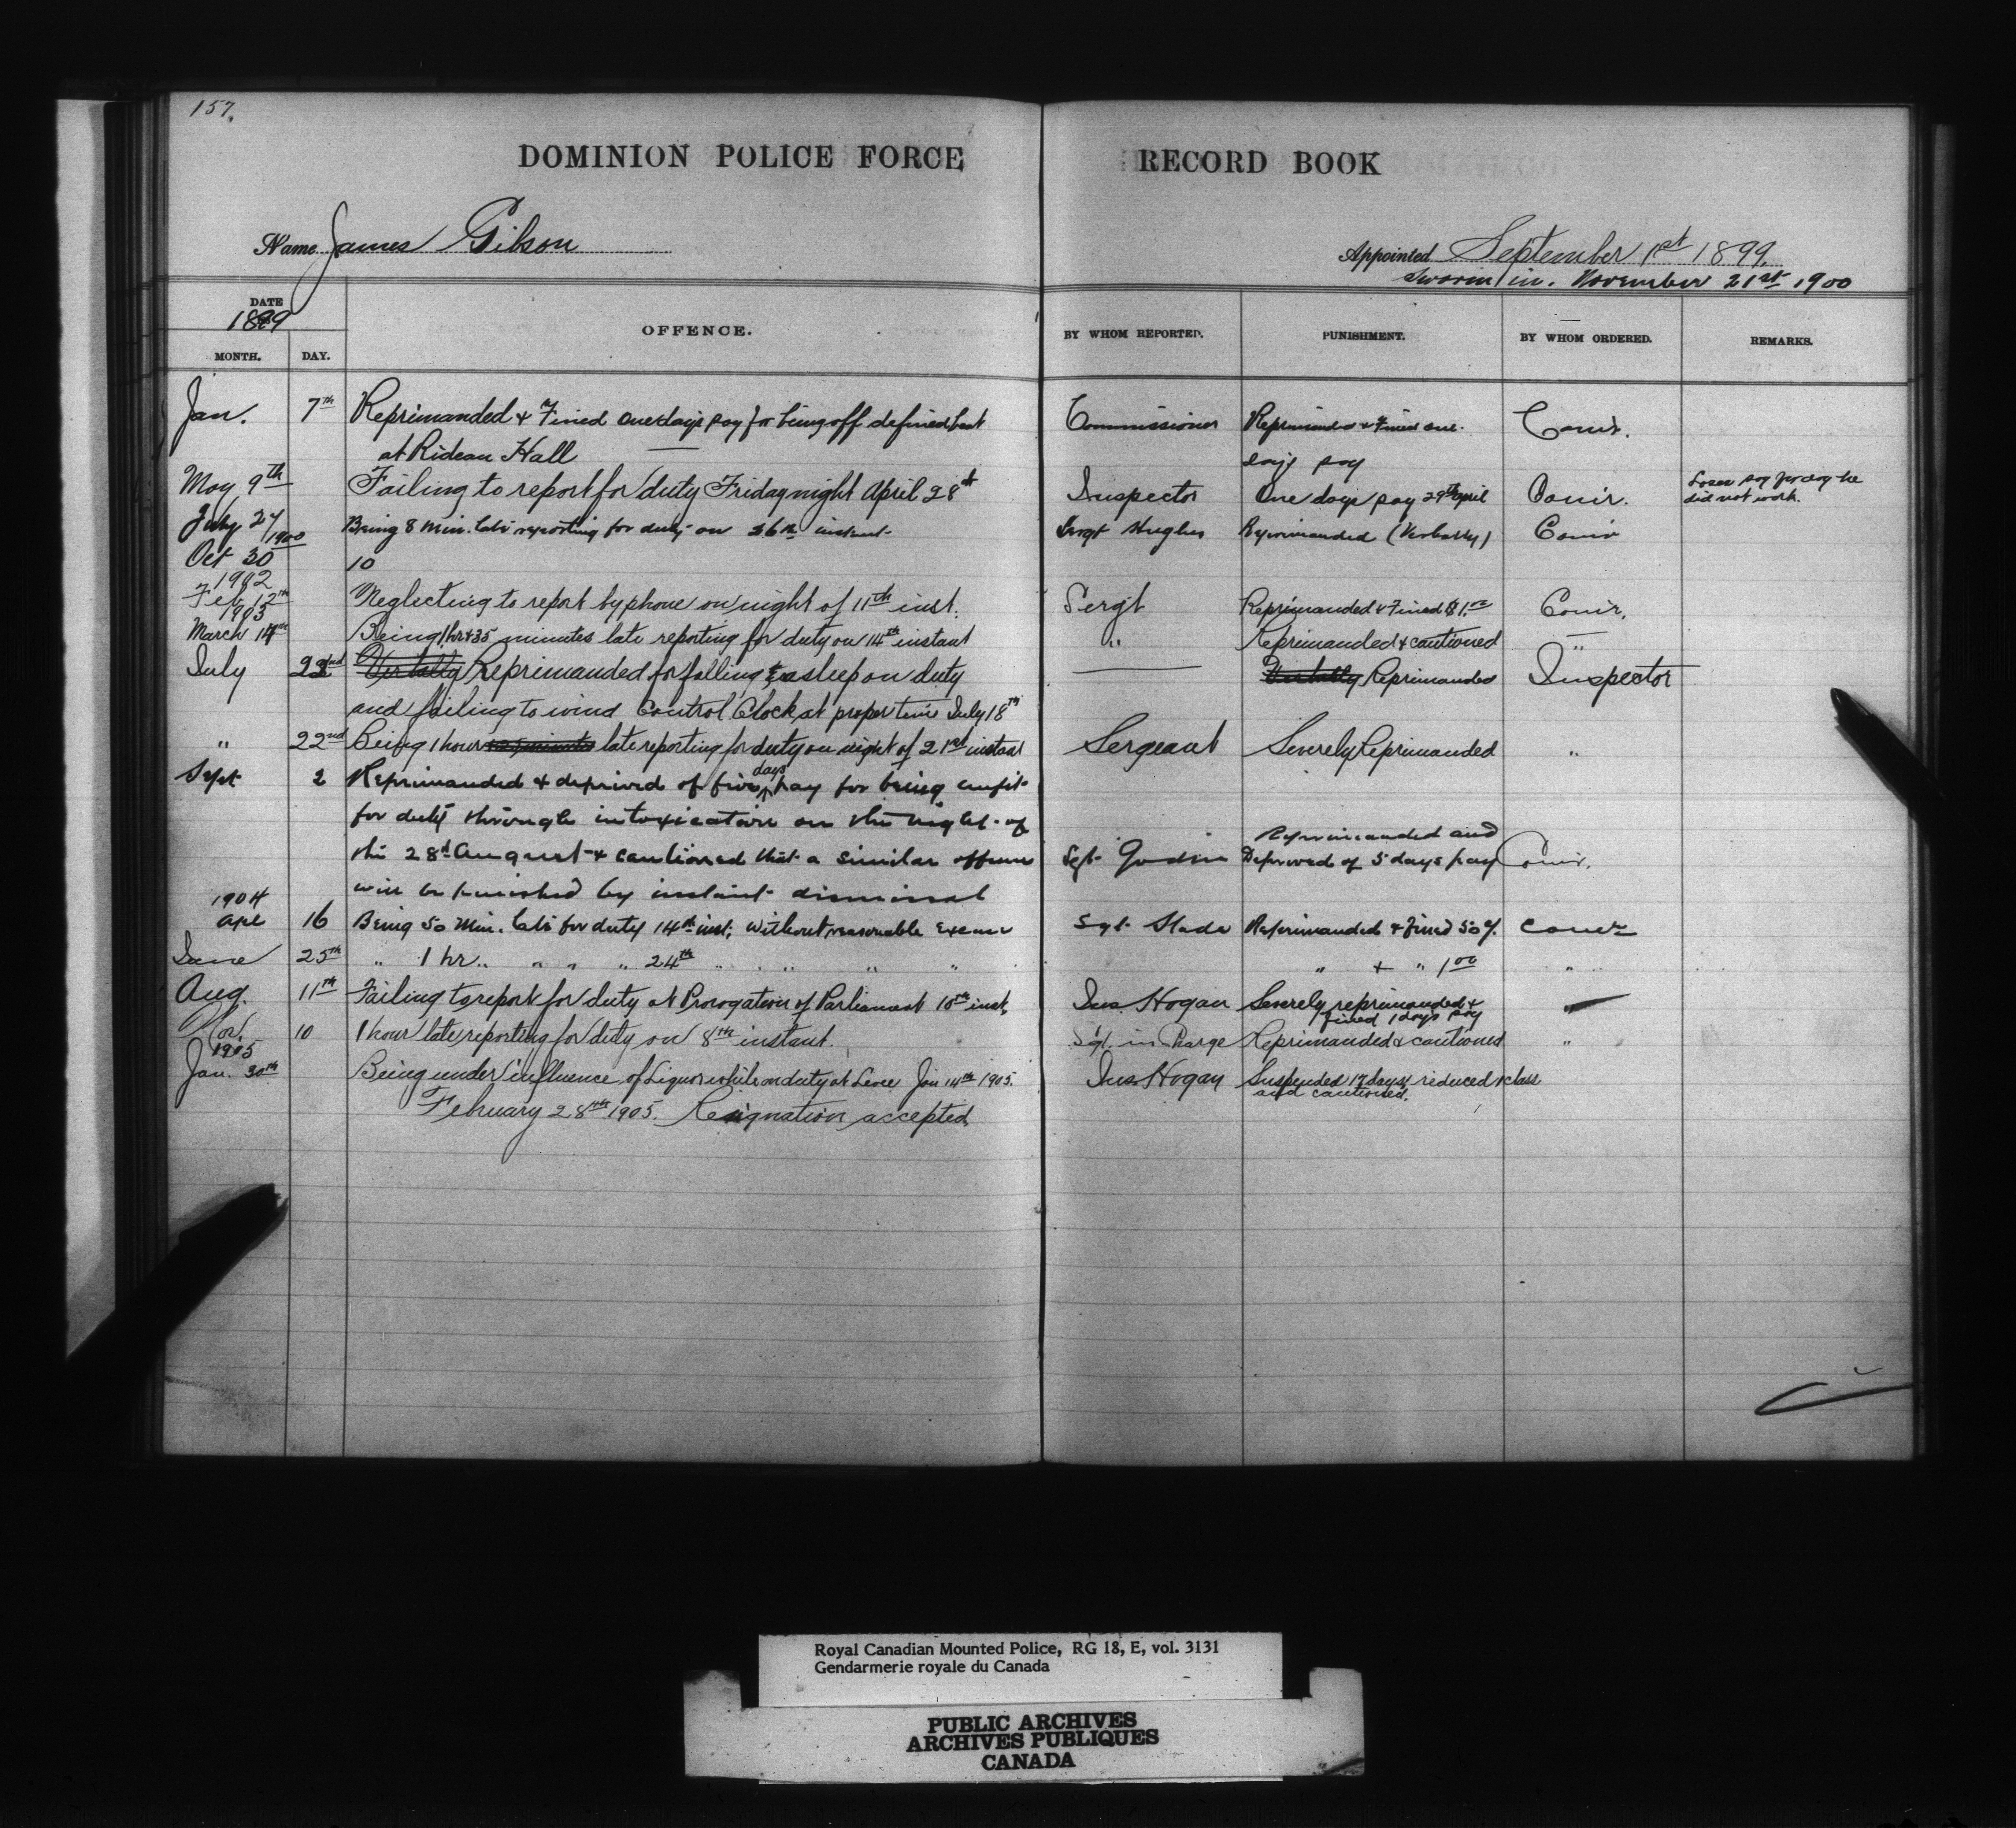 157.
DOMINION POLICE FORCE RECORD BOOK
Name James Gibson
Appointed September 1st 1899.
Sworn in. November 21st 1900
DATE
1899
MONTH. DAY. OFFENCE. BY WHOM REPORTED. PUNISHMENT. BY WHOM ORDERED. REMARKS.
Jan. 7th Reprimanded & Fined one days pay for being off defined beat Commissioner Reprimanded & Fined one Comr.
at Rideau Hall days pay
May 9th Failing to report for duty Friday night April 28th Inspector One days pay 29th April Comr. Loses pay for day he
did not work.
July 27 Being 8 min. late reporting for duty on 26th instant Sergt Hughes Reprimanded (Verbally) Comr
1900
Oct 30 10
1902
Feb 12th Neglecting to report by phone on night of 11th inst. Sergt Reprimanded & Fined $1.00 Comr.
1903
March 14th Being 1 hr & 35 minutes late reporting for duty on 14th instant " Reprimanded & cautioned "
July 22nd Verbally Reprimanded for falling asleep on duty — Verbally Reprimanded Inspector
and failing to wind Control Clock at proper time July 18th
" 22nd Being 1 hour & 25 minutes late reporting for duty on night of 21st instant Sergeant Severely Reprimanded "
Sept 2 Reprimanded & deprived of five days pay for being unfit
for duty through intoxication on the night of Reprimanded and
the 28th August & cautioned that a similar offence Sgt. Deprived of 5 days pay Comr.
will be punished by instant dismissal
1904
Apl 16 Being 50 Min. late for duty 14th inst; without reasonable excuse Sgt. Slade Reprimanded & fined 50¢. Comr
June 25th " 1 hr " " " " 24th " " " " " " & " 1.00 " "
Aug. 11th Failing to report for duty at Prorogation of Parliament 10th inst. Ins. Hogan Severely reprimanded &
fined 1 days pay
Nov. 10 1 hour late reporting for duty on 8th instant. Sgt. in Charge Reprimanded & cautioned "
1905
Jan. 30th Being under influence of Liquor while on duty at Levee Jan 14th 1905. Ins Hogan Suspended 17 days, reduced 1 class
and cautioned.
February 28th 1905. Resignation accepted
Royal Canadian Mounted Police, RG 18, E, vol. 3131
Gendarmerie royale du Canada
PUBLIC ARCHIVES
ARCHIVES PUBLIQUES
CANADA